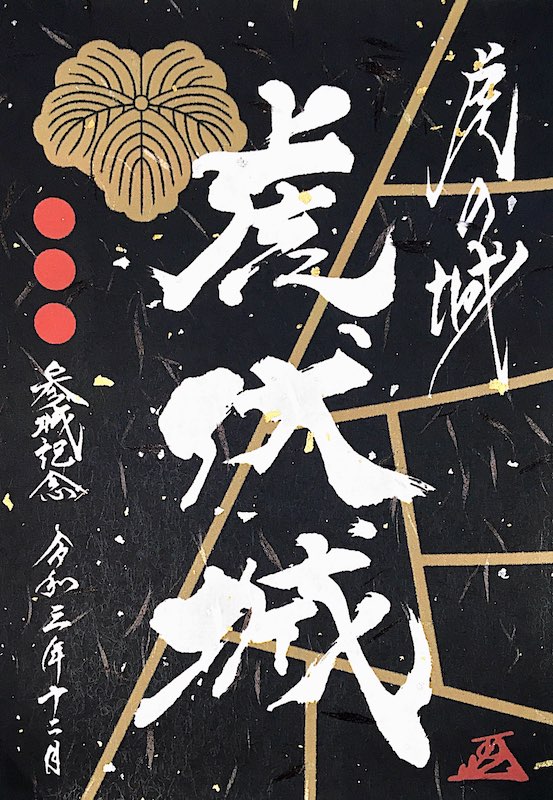 虎の城
虎伏城
参城記念 令和三年十二月